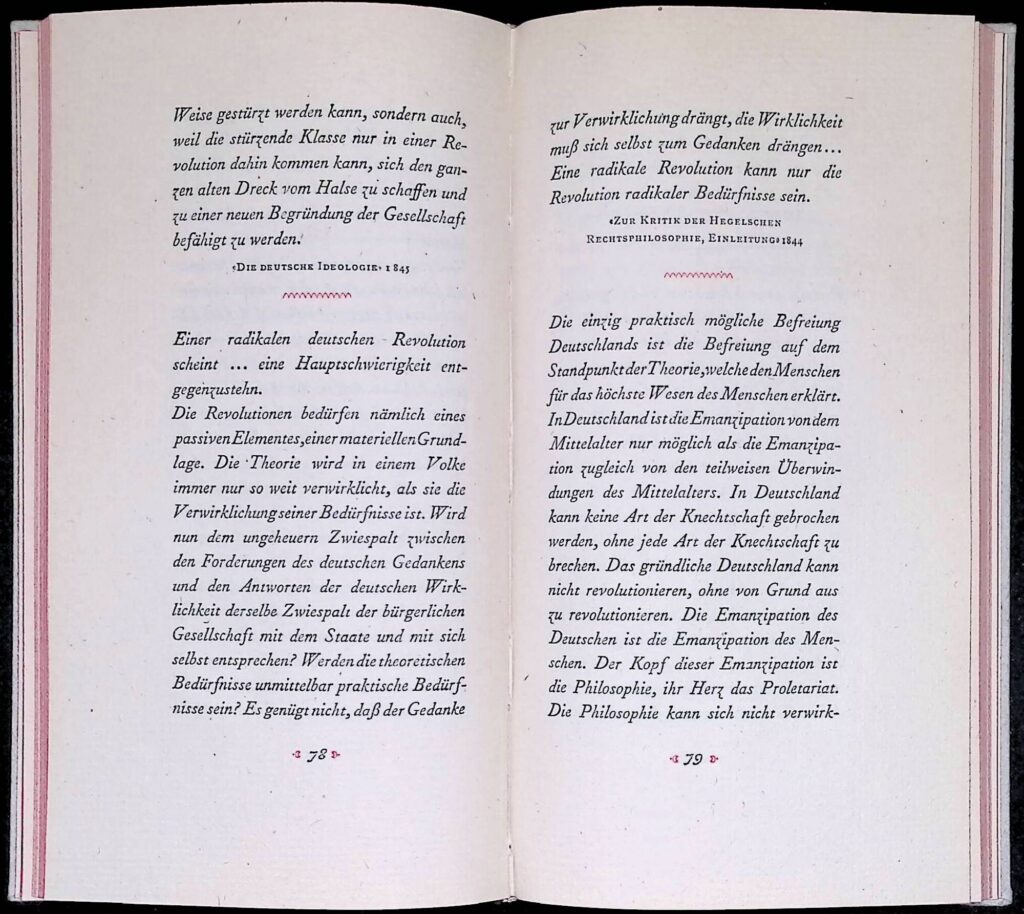 Weise gestürzt werden kann, sondern auch,
weil die stürzende Klasse nur in einer Re-
volution dahin kommen kann, sich den gan-
zen alten Dreck vom Halse zu schaffen und
zu einer neuen Begründung der Gesellschaft
befähigt zu werden.
‹Die deutsche Ideologie› 1845
Einer radikalen deutschen Revolution
scheint ... eine Hauptschwierigkeit ent-
gegenzustehn.
Die Revolutionen bedürfen nämlich eines
passiven Elementes, einer materiellen Grund-
lage. Die Theorie wird in einem Volke
immer nur so weit verwirklicht, als sie die
Verwirklichung seiner Bedürfnisse ist. Wird
nun dem ungeheuern Zwiespalt zwischen
den Forderungen des deutschen Gedankens
und den Antworten der deutschen Wirk-
lichkeit derselbe Zwiespalt der bürgerlichen
Gesellschaft mit dem Staate und mit sich
selbst entsprechen? Werden die theoretischen
Bedürfnisse unmittelbar praktische Bedürf-
nisse sein? Es genügt nicht, daß der Gedanke
78
zur Verwirklichung drängt, die Wirklichkeit
muß sich selbst zum Gedanken drängen...
Eine radikale Revolution kann nur die
Revolution radikaler Bedürfnisse sein.
‹Zur Kritik der Hegelschen
Rechtsphilosophie, Einleitung› 1844
Die einzig praktisch mögliche Befreiung
Deutschlands ist die Befreiung auf dem
Standpunkt der Theorie, welche den Menschen
für das höchste Wesen des Menschen erklärt.
In Deutschland ist die Emanzipation von dem
Mittelalter nur möglich als die Emanzipa-
tion zugleich von den teilweisen Überwin-
dungen des Mittelalters. In Deutschland
kann keine Art der Knechtschaft gebrochen
werden, ohne jede Art der Knechtschaft zu
brechen. Das gründliche Deutschland kann
nicht revolutionieren, ohne von Grund aus
zu revolutionieren. Die Emanzipation des
Deutschen ist die Emanzipation des Men-
schen. Der Kopf dieser Emanzipation ist
die Philosophie, ihr Herz das Proletariat.
Die Philosophie kann sich nicht verwirk-
79